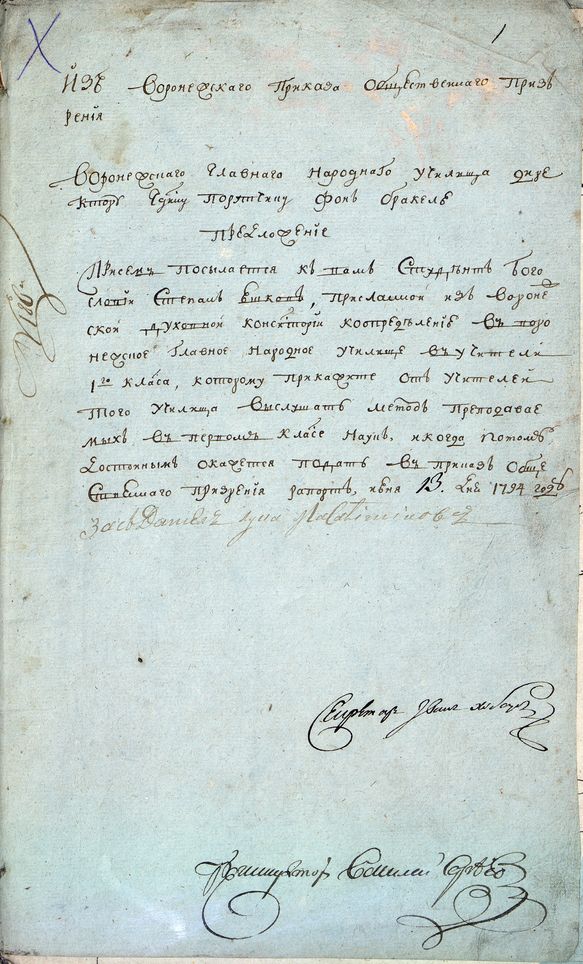 1
Изъ Воронежскаго Приказа Общественнаго Призѣ
рения
Воронежскаго Главнаго Народнаго Училища дире
ктору Порутчику Фонъ Бракель
Предложение
Присемъ посылается къ вамъ Студентъ Бого
словии Степанъ, присланной изъ Вороне
ской духовной консистории коопредѣлению въ воро
нежское Главное Народное Училище въ учители
1го класа, которому прикажите отъ учителей
того Училища выслушать методъ преподавае
мыхъ въ первомъ класе наукъ, икогда потомъ
достойнымъ окажется подать въ приказъ Обще
ственнаго призрения рапортъ, июня 13. дня 1794 года
Секретарь